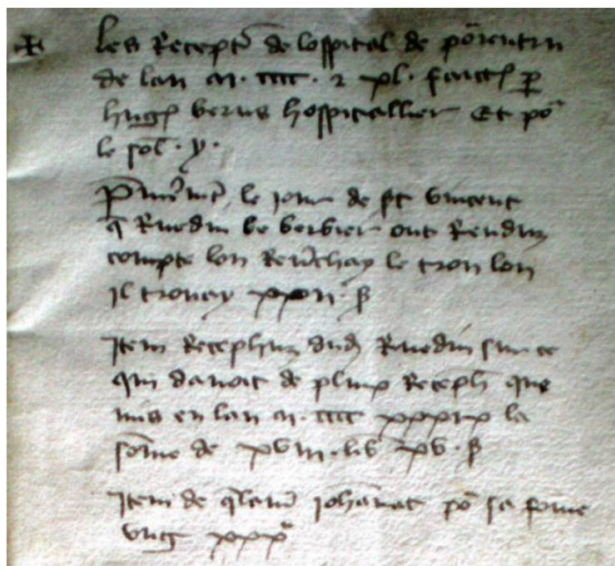 Les Recept de lospital de porentru
de lan m · cccc · 2 xl · faictes p
hug berus hospitallier Et po
le sol · y ·
Pmmt le jour de st vincent
q Ruedin le berbier out Rendu
compte lon Renchay le tron lon
il trouay xxii · s
Item Recephuz dud Ruedin sur ce
qui davoit de plux Receph que
mis en lan m · cccc xxxix la
some de xviii · lib xv · s
Item de johanat po sa fome
ung xxx